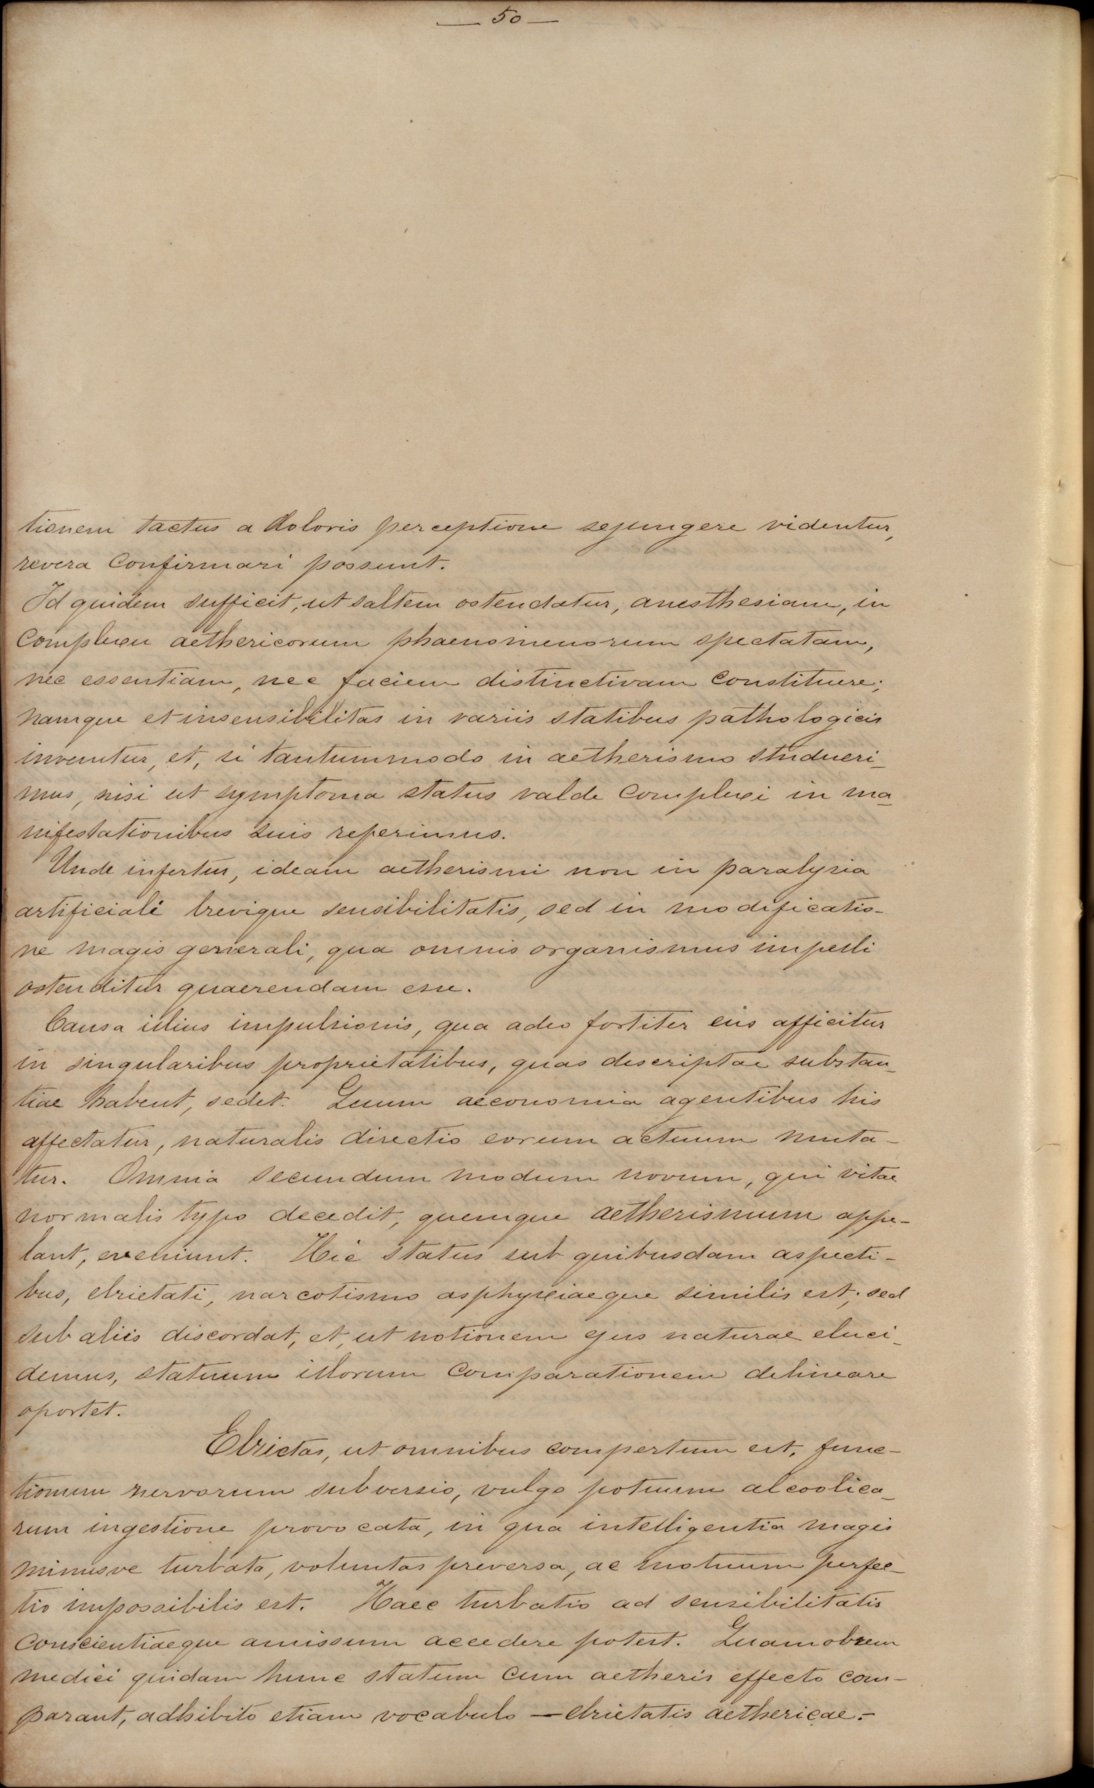 — 50 —
tionem tactus a doloris perceptione sejungere videntur,
revera confirmari possunt.
Id quidem sufficit, ut saltem ostendatur, anesthesiam, in
complexu aethericorum phaenomenorum spectatam,
nec essentiam, nec faciem distinctivam constituere;
namque et insensibilitas in variis statibus pathologicis
invenitur, et, si tantummodo in aetherismo studueri-
mus, nisi ut symptoma status valde complexi in ma-
nifestationibus suis referimus.
Unde infertur, ideam aetherismi non in paralysia
artificiali brevique sensibilitatis, sed in modificatio-
ne magis generali, qua omnis organismus impelli
ostenditur quaerendam esse.
Causa illius impulsionis, qua adeo fortiter eus afficitur
in singularibus proprietatibus, quas descriptae substan-
tiae habent, sedet. Quum aeconomia agentibus his
affectatur, naturalis directio eorum actuum muta-
tur. Omnia secundum modum novum, qui vitae
normalis typo decedit, quemque aetherismum appe-
lant, eveniunt. Hic status sub quibusdam aspecti-
bus, ebrietati, narcotismo asphyxiaeque similis est; sed
sub aliis discordat, et, ut notionem ejus naturae eluci-
demus, statuum illorum comparationem delineare
oportet.
Ebrietas, ut omnibus compertum est, func-
tionum nervorum subversio, vulgo potuum alcoolica-
rum ingestione provocata, in qua intelligentia magis
minusve turbata, voluntas preversa, ac motuum perfec-
tio impossibilis est. Haec turbatio ad sensibilitatis
conscientiaeque amissum accedere potest. Quamobrem
medici quidam hunc statum cum aetheris effecto com-
parant, adhibito etiam vocabulo — ebrietatis aethericae. -